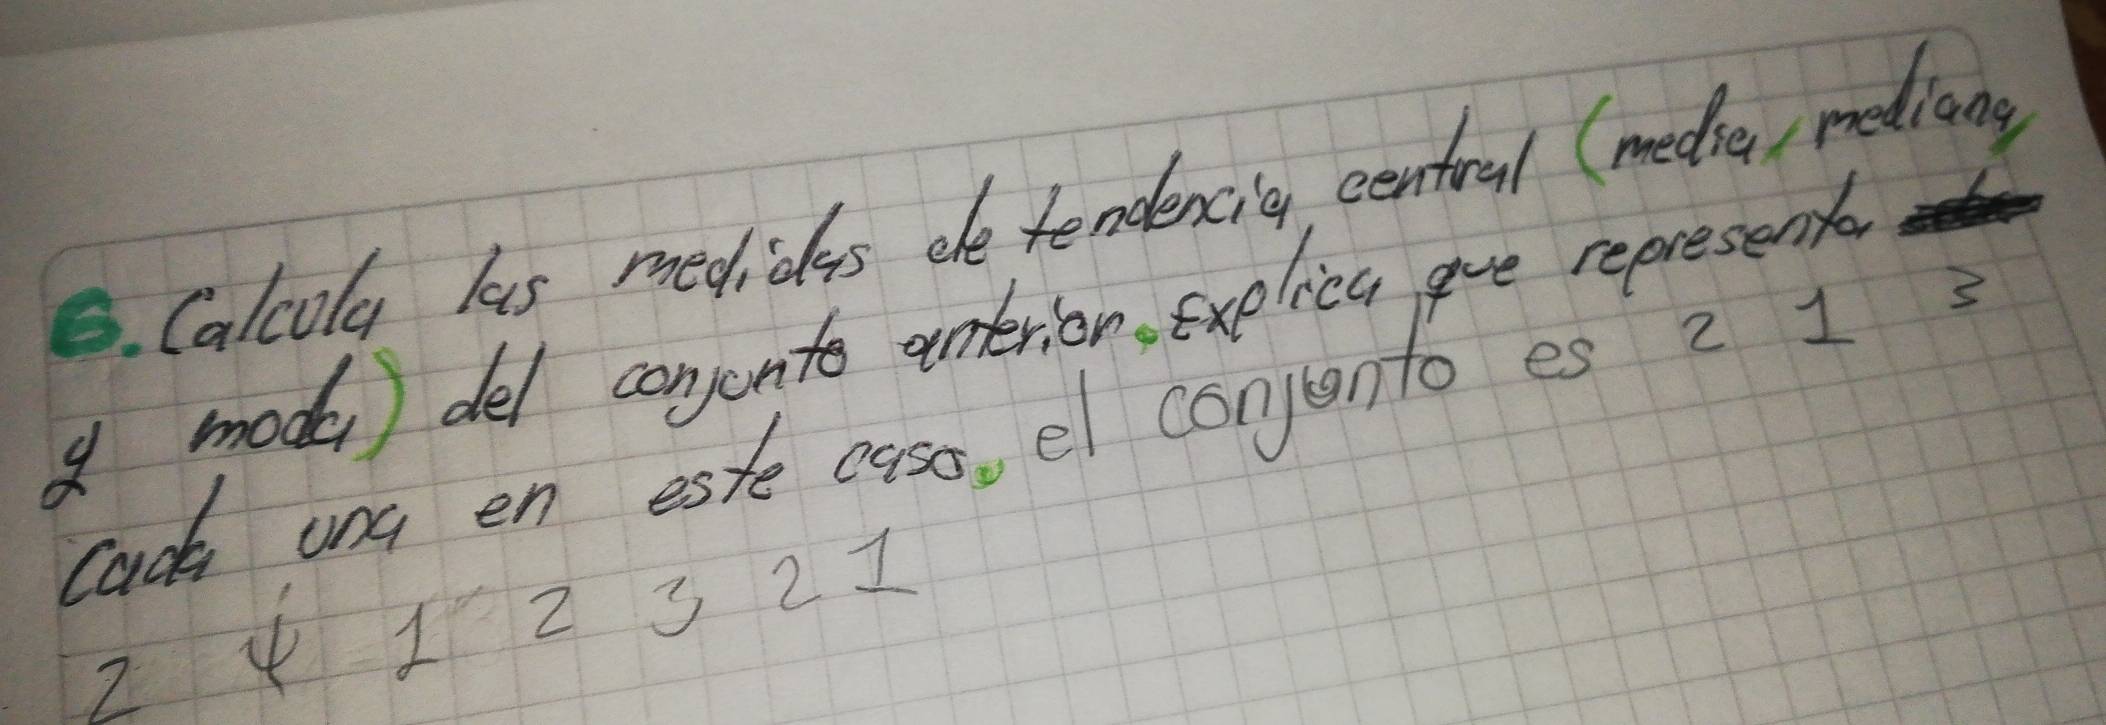 6. Calcula las medidas de tendencia central (media, mediana,
y moda) del conjunto anterior. Explica que representa
cada una en este caso. el conjunto es 2 1 3
2 4 1 2 3 2 1